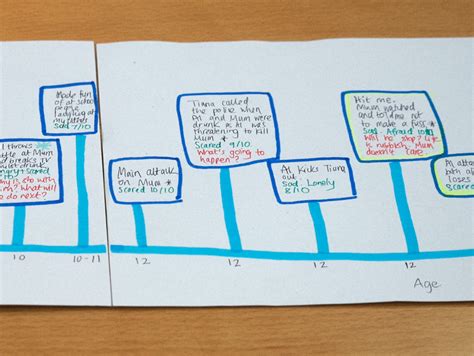 Made fun
of at school
people
laughing at
my
Sad 7/10
l throws
at Mum
breaks TV
drunk
Angry + scared
/10
is eto with
? What will
do next?
Main attack
on Mum *
Scared 10/10
Tiana called
the police when
Al and Mum were
drunk * Al was
threatening to kill
Mum
Scared 9/10
What's going to
happen?
Al Kicks Tiana
out.
Sad Lonely
8/10
Hit me.
Mum watched
and told me not
to make a fuss *
Sad Afraid 10/10
Will he stop? Life
is rubbish, Mum
doesn't care.
Al atta
both
loses
Scared
10
10-11
12
12
12
12
Age